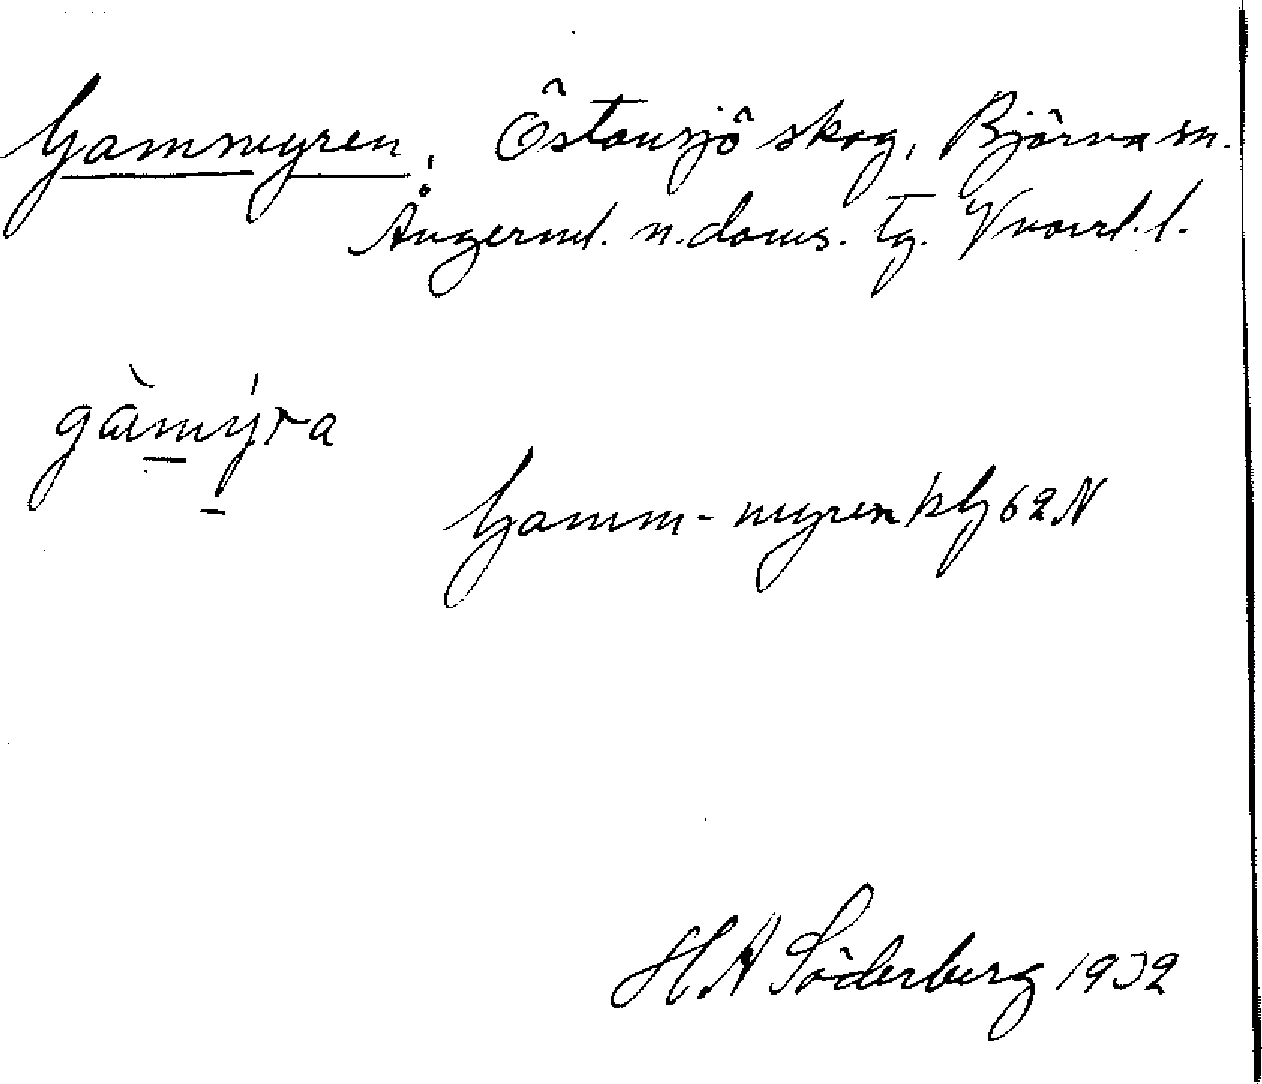 Gammyren, Östansjö skog, Björna sn.
Ångerml. n. doms. Tg. Vnorrl. l.
gàmýra
Gamm-myren kbg 62 N
H A Söderberg 1932